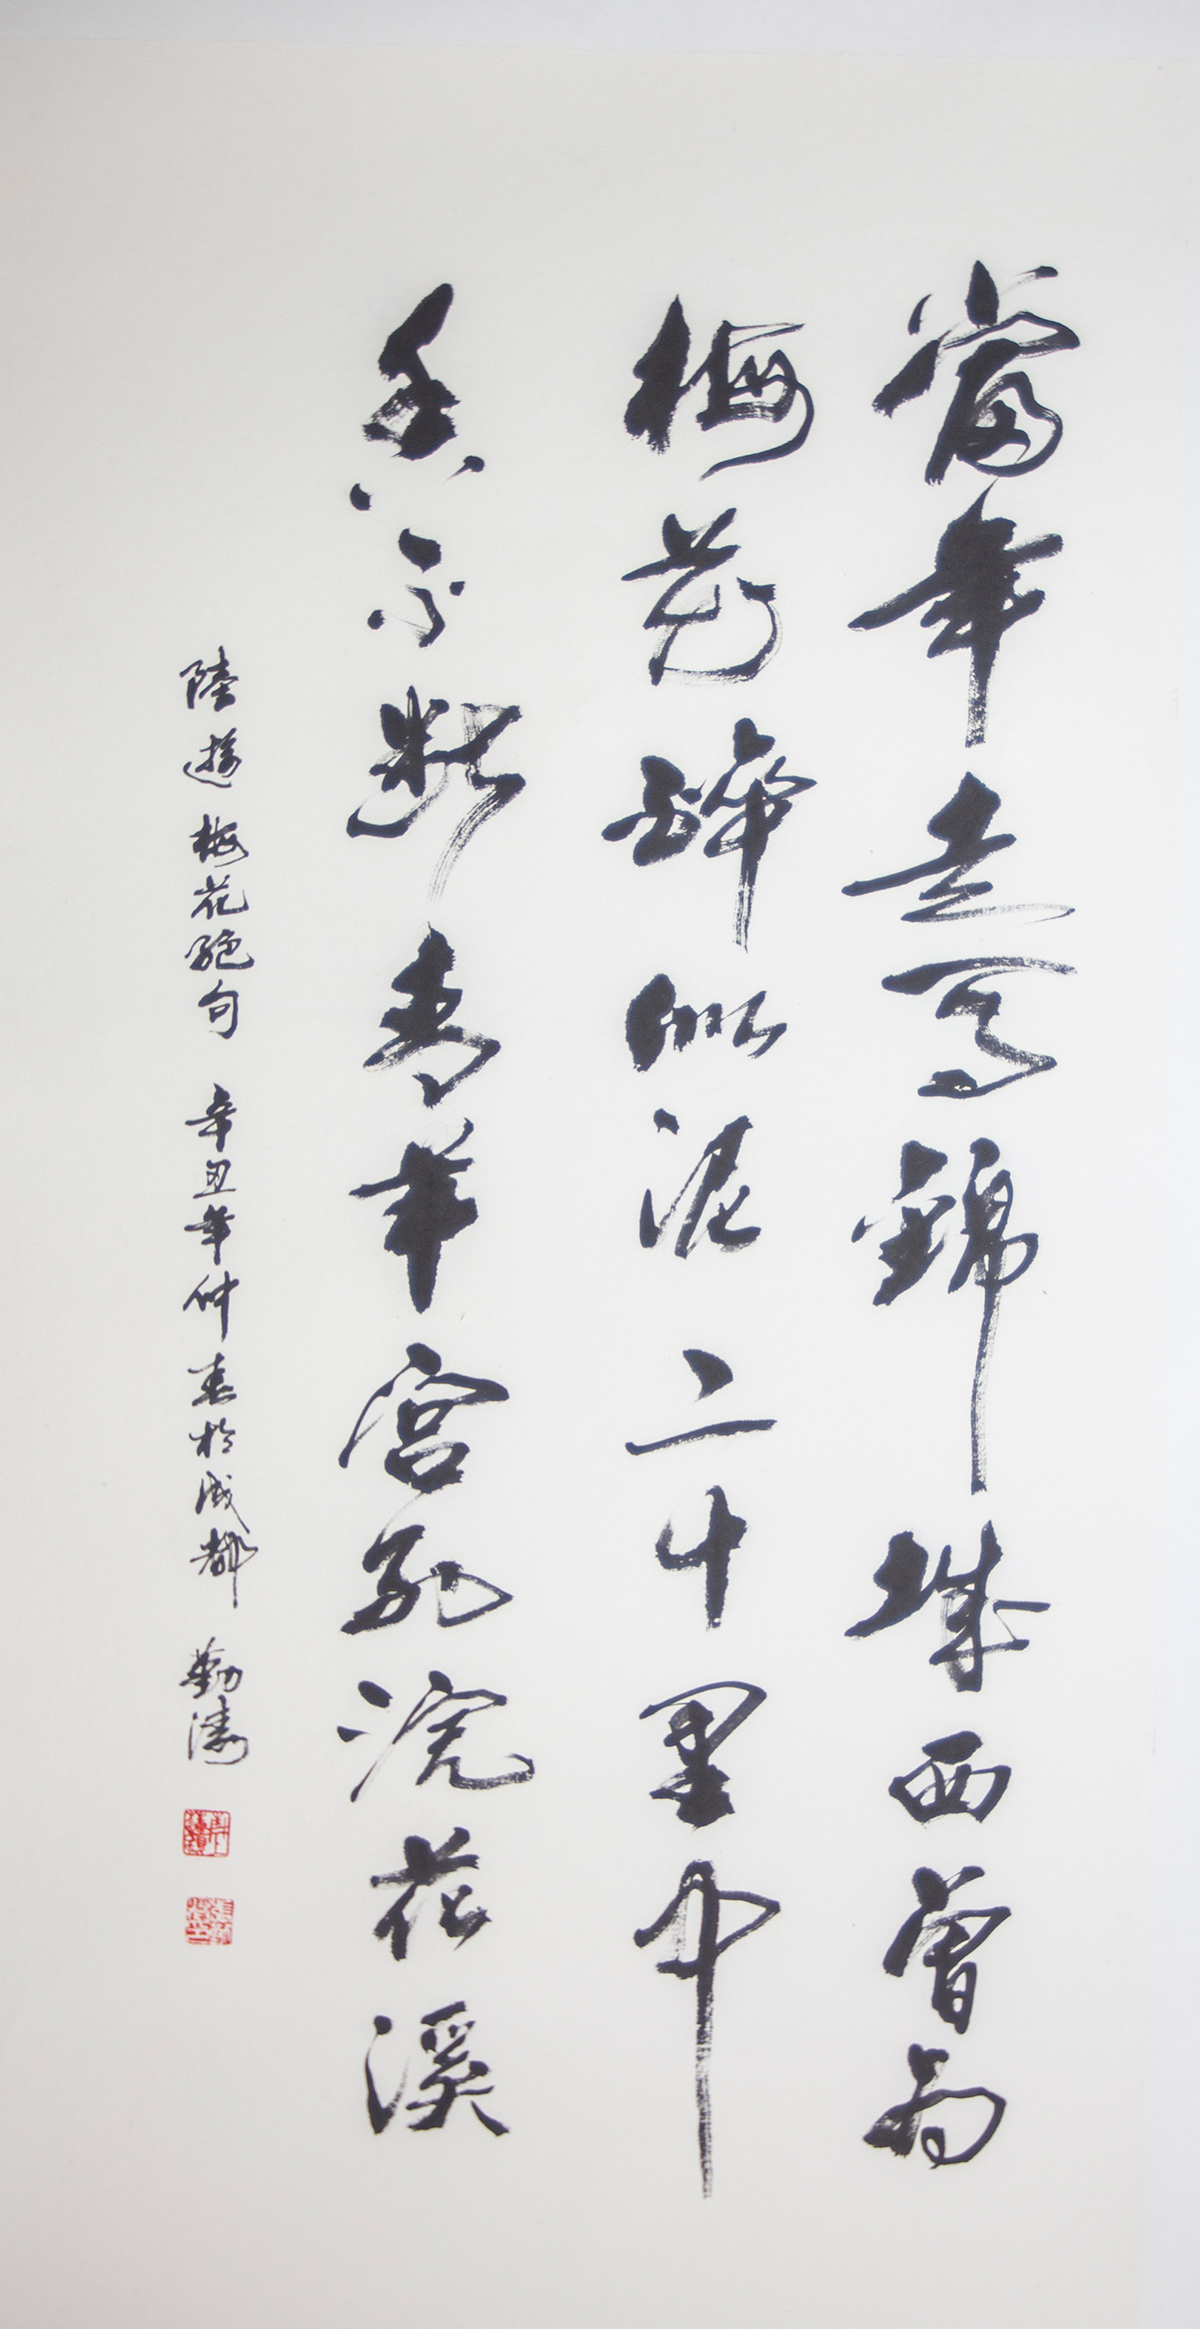 當年走馬錦城西曾為
梅花醉似泥二十里中
香不斷青羊宮到浣花溪
陸遊梅花絕句 辛丑年仲春於成都 勤濤